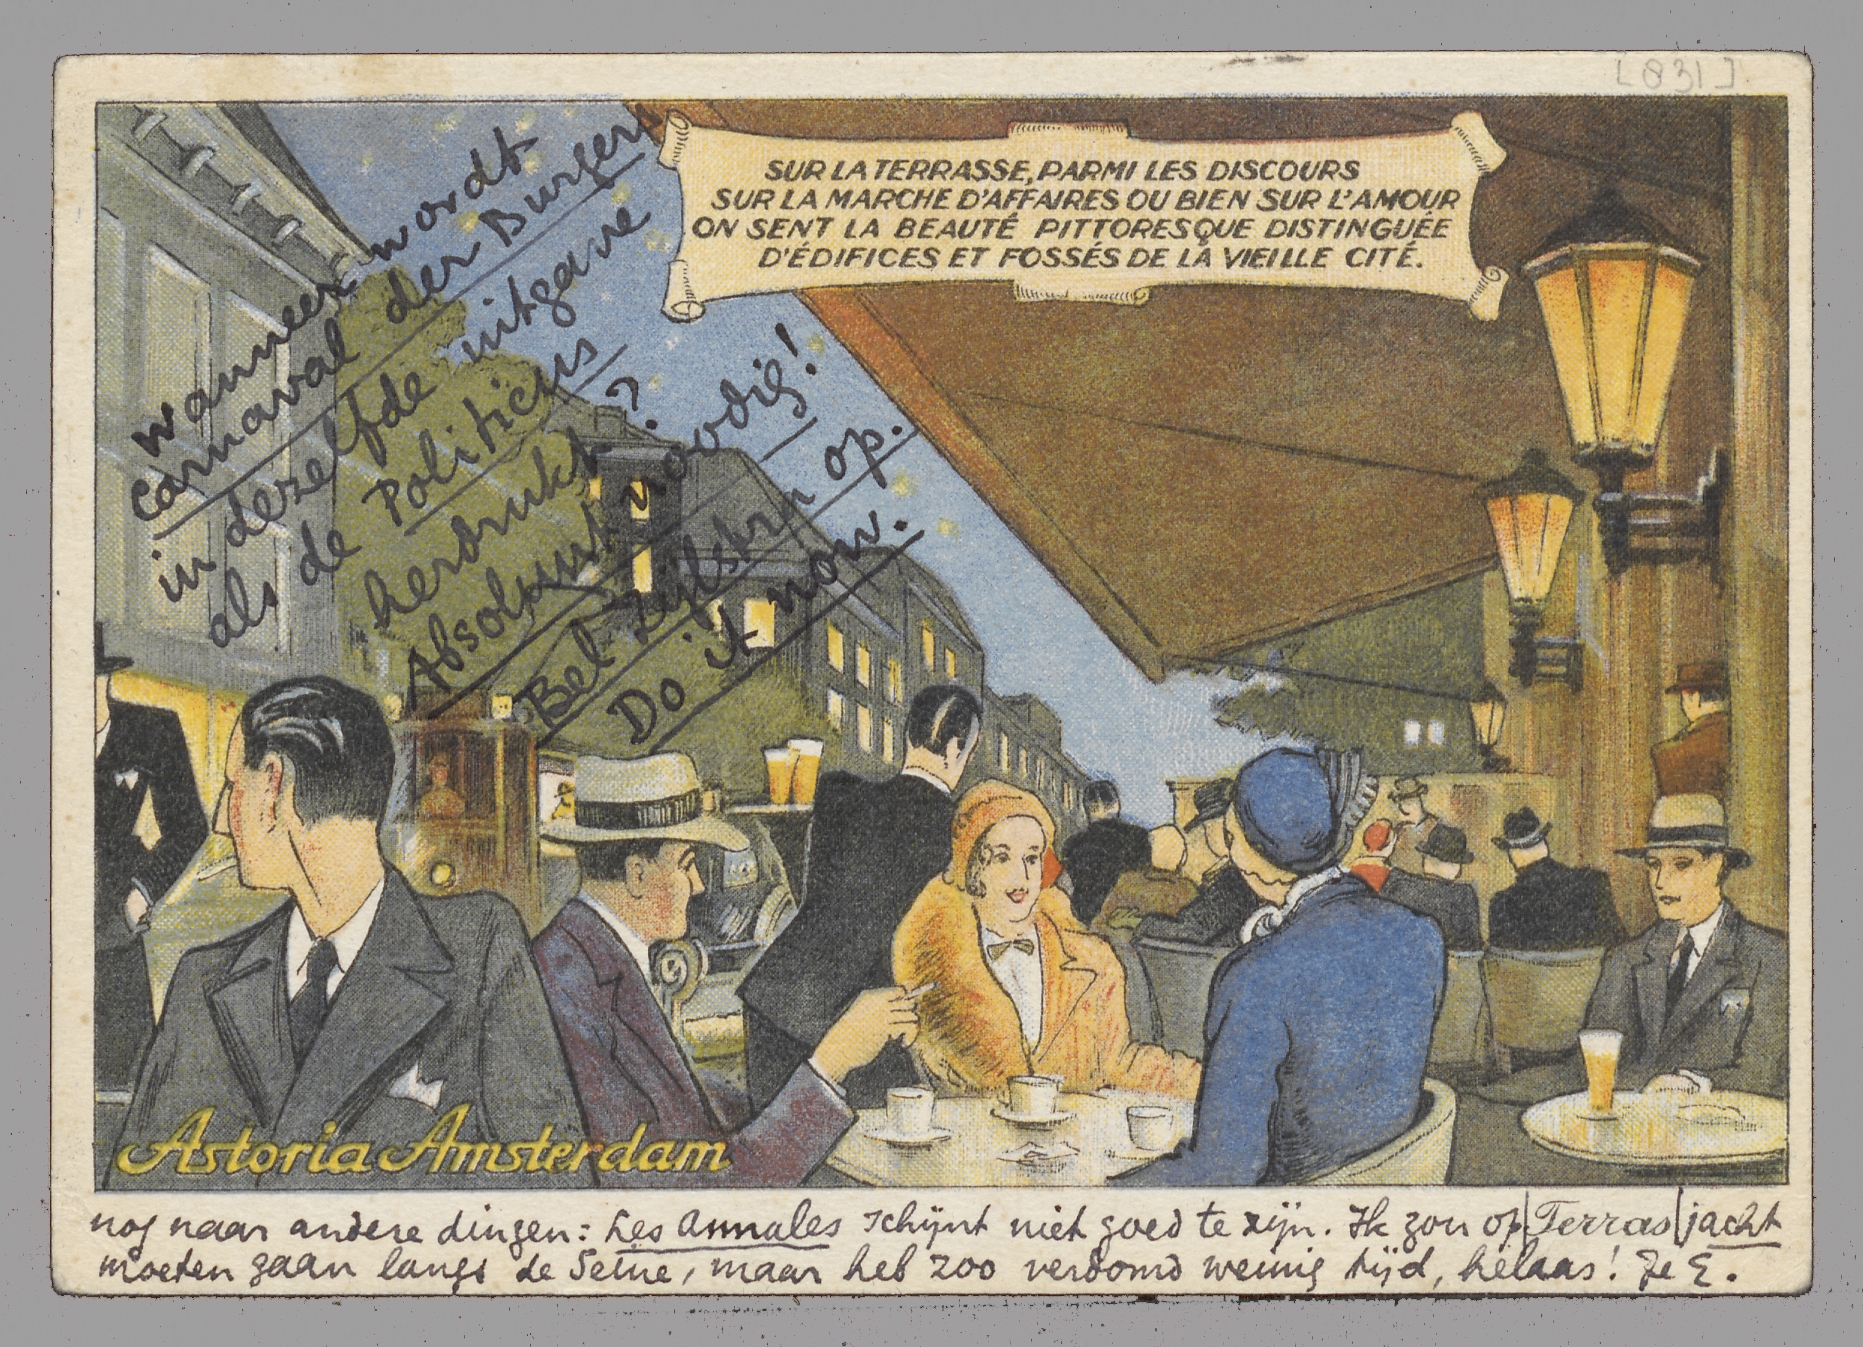 [831]
SUR LA TERRASSE, PARMI LES DISCOURS
SUR LA MARCHE D'AFFAIRES OU BIEN SUR L'AMOUR
ON SENT LA BEAUTÉ PITTORESQUE DISTINGUÉE
D'ÉDIFICES ET FOSSÉS DE LA VIEILLE CITÉ.
wanneer wordt
Carnaval der Burgers
in dezelfde uitgave
als de Politicus
herdrukt?
Absoluut noodig!
Bel Zijlstra op.
Do it now.
Astoria Amsterdam
nog naar andere dingen: Les Annales schijnt niet goed te zijn. Ik zou op Terras jacht
moeten gaan langs de Seine, maar heb zoo verdomd weinig tijd, helaas! Je E.